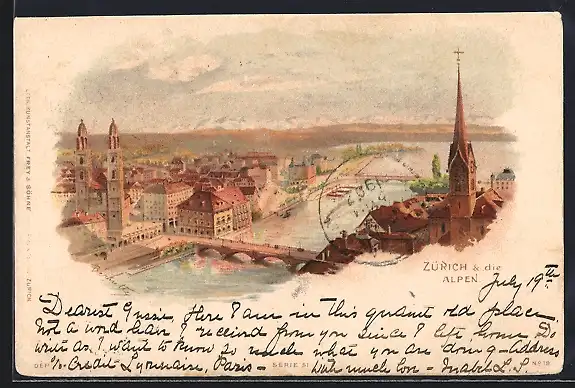 ZÜRICH & die
ALPEN
July 19th
Dearest Gussie, Here I am in this quaint old place.
Not a word have I received from you since I left home. Do
write as I want to know so much what you are doing - Address
c/o Credit Lyonnaise, Paris - With much love - Mabel L. S.
DEP. SERIE SI No 18
LITH. KUNSTANSTALT FREY & SÖHNE ZÜRICH